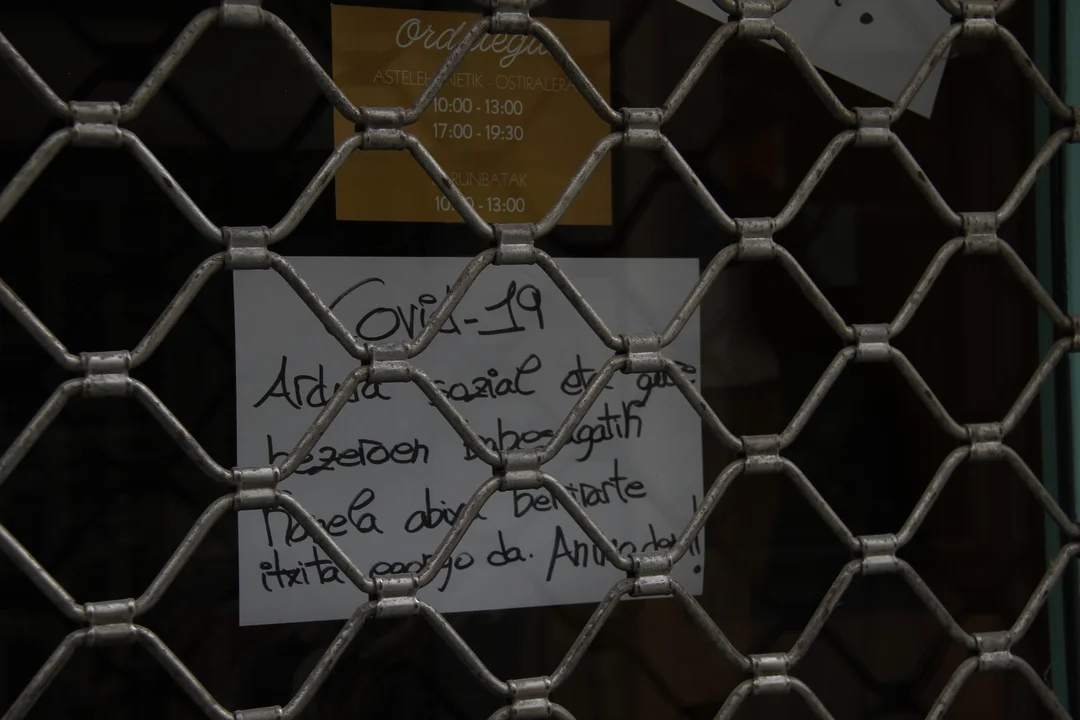 Ordutegia
ASTELEHENETIK - OSTIRALERA
10:00 - 13:00
17:00 - 19:30
LARUNBATAK
10:00 - 13:00
Covid-19
Ardura sozial eta gure
bezeroen onbeagatik
Honela abixu berrirarte
itxita egongo da. Animo danoi!